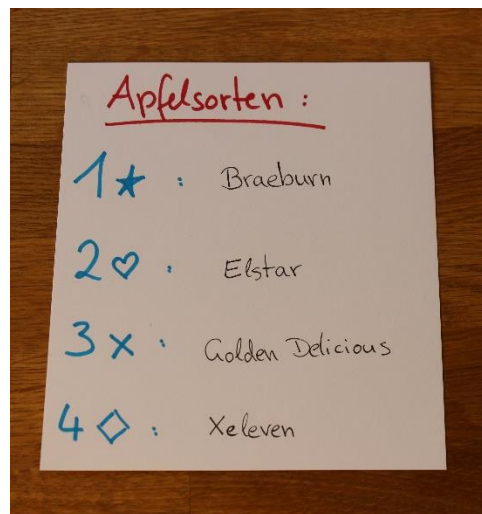 Apfelsorten :
1★ : Braeburn
2♡ : Elstar
3x : Golden Delicious
4◇ : Xeleven